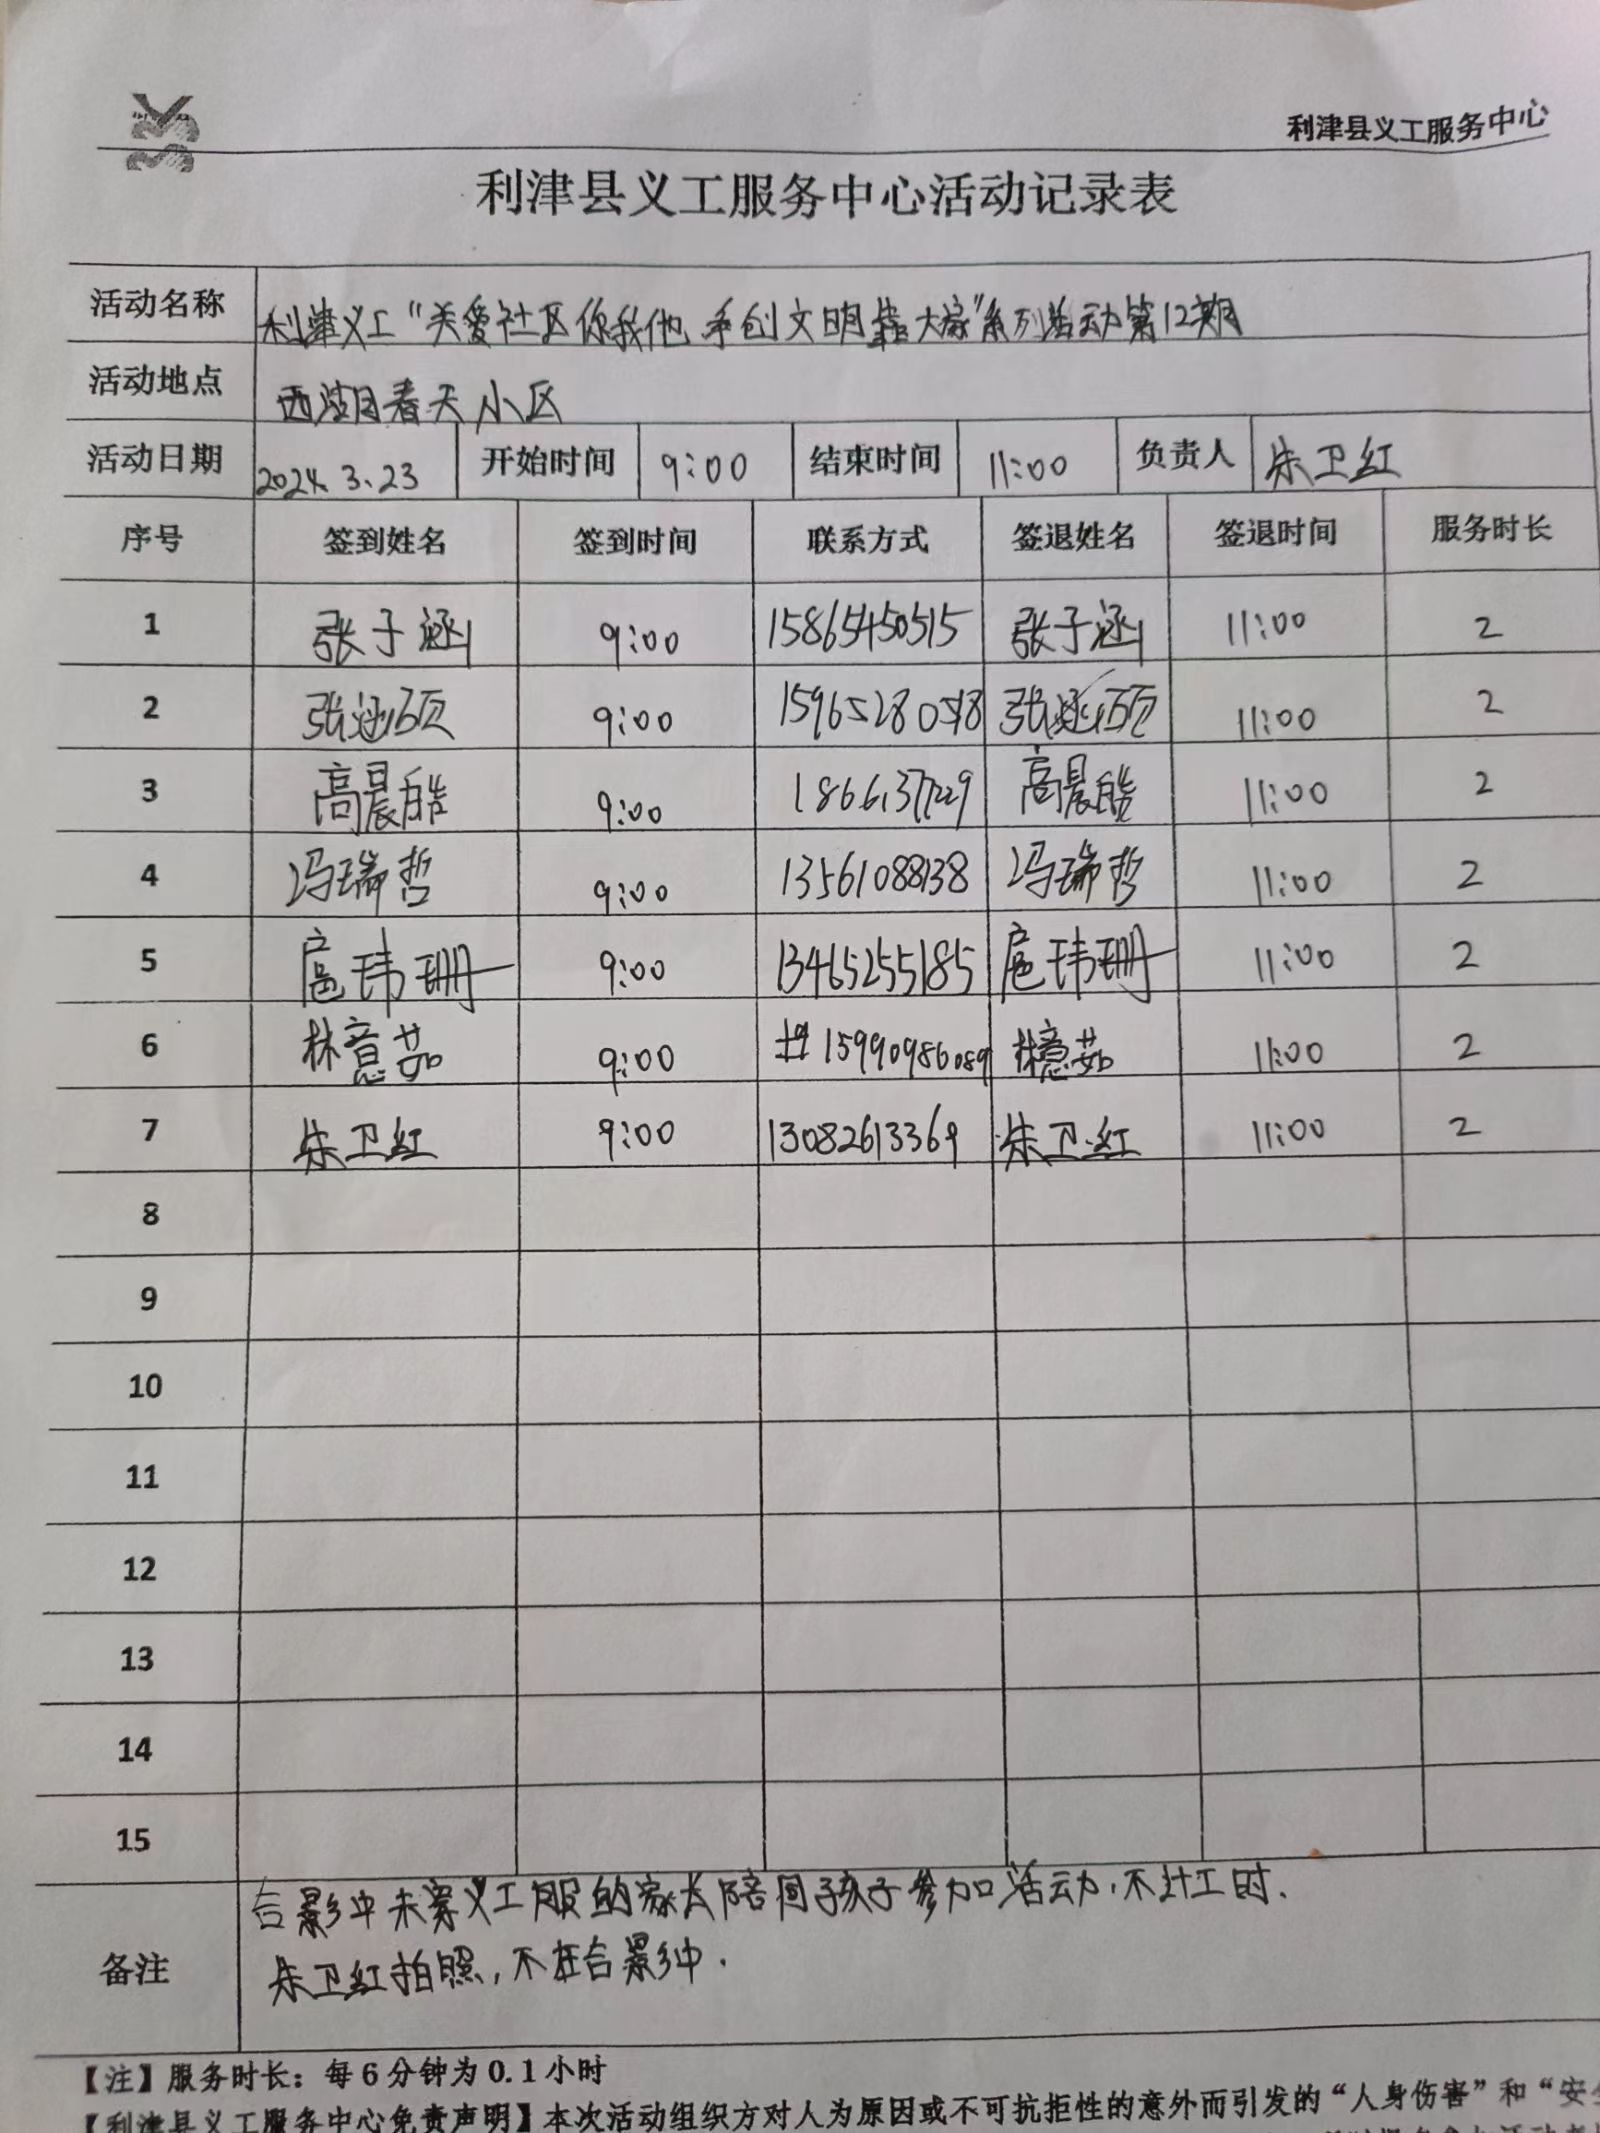 利津县义工服务中心
利津县义工服务中心活动记录表
活动名称 利津义工“关爱社区你我他,手创文明靠大家”系列活动第12期
活动地点 西湖春天小区
活动日期 2024.3.23 开始时间 9:00 结束时间 11:00 负责人 朱卫红
序号 签到姓名 签到时间 联系方式 签退姓名 签退时间 服务时长
1 张子涵 9:00 15865450515 张子涵 11:00 2
2 张涵硕 9:00 15965280518 张涵硕 11:00 2
3 高晨皓 9:00 高晨皓 11:00 2
4 冯瑞哲 9:00 13561088138 冯瑞哲 11:00 2
5 扈玮珊 9:00 13465255185 扈玮珊 11:00 2
6 林意茹 9:00 15990986089 林意茹 11:00 2
7 朱卫红 9:00 13082613369 朱卫红 11:00 2
8
9
10
11
12
13
14
15
备注 合影中未穿义工服的家长陪同孩子参加活动,不计工时.
朱卫红拍照,不在合影中.
【注】服务时长：每6分钟为0.1小时
【利津县义工服务中心免责声明】本次活动组织方对人为原因或不可抗拒性的意外而引发的“人身伤害”和“安全